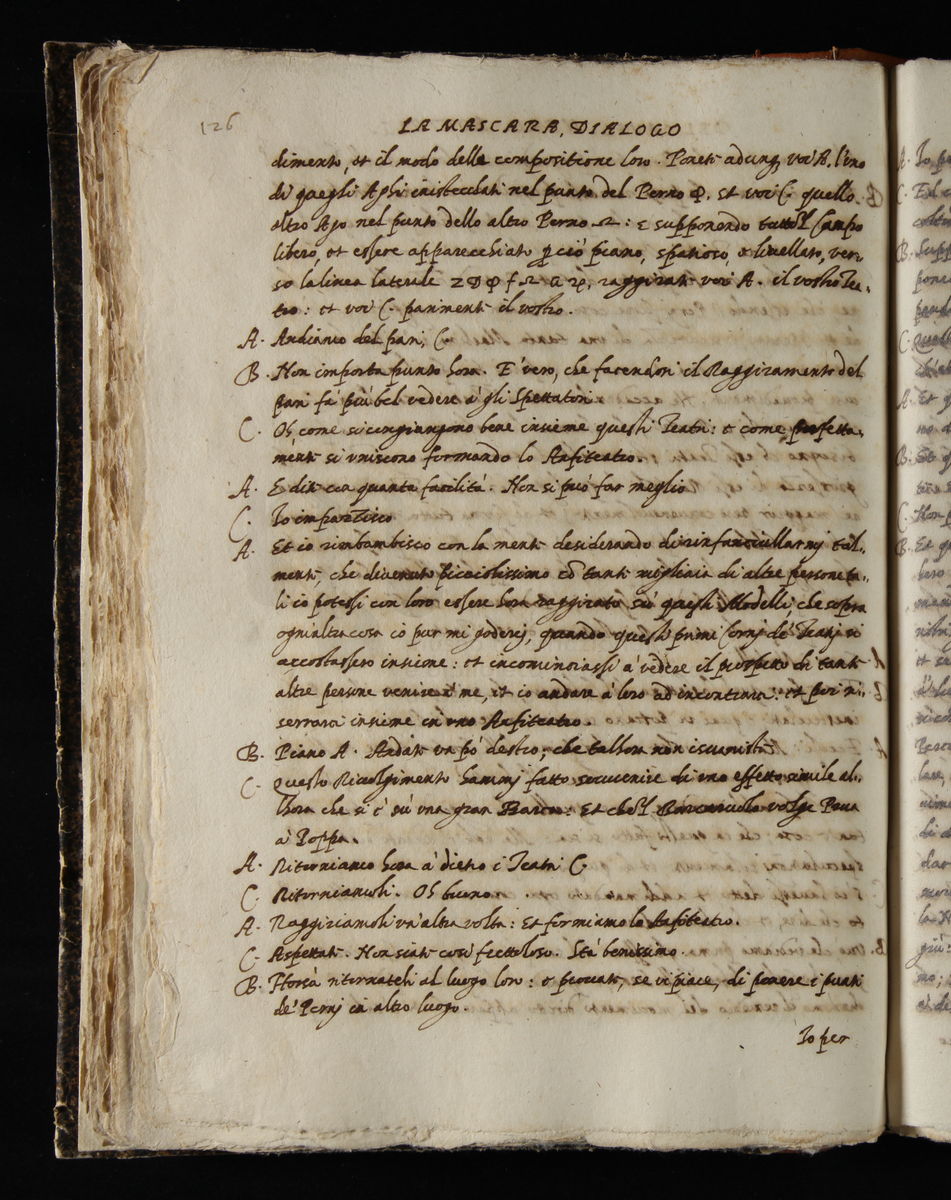 126
LA MASCARA, DIALOGO
dimento, et il modo delle compositione loro. Ponete adunq, voi A. l'uno
di quegli Aghi inisteccati nel punto del Perno φ. et voi C. quello
altro Ago nel punto dello altro Perno Ω: e supponendo tutto'l Campo
libero, et essere apparecchiato p ciò piano, spatioso, e livellato, ver,,
so la linea laterale
raggirate voi A. il vostro Tea,,
tro: et voi C. parimente il vostro.
A. Andiamo del pari, C.
B. Non importa punto hora. E' vero, che facendosi il Raggiramento del
pari fà più bel vedere à gli Spettatori.
C. Oh come si congiungono bene insieme questi Teatri: e come perfetta,,
mente si uniscono formando lo Anfiteatro.
A. E dite con quanta facilità. Non si può far meglio.
C. Io impazzisco
A. Et io rimbambisco con la mente desiderando di rinfanciullarmj tal,,
mente, che divenuto picciolissimo cō tante migliaia di altre persone ta,,
li io potessi con loro essere hora raggirato sù questi Modelli, che sopra
ogni altra cosa io pur mi goderej, quando questi primi Cornj de' Teatrj si
accostassero insieme: et incominciassi à vedere il prospetto di tante
altre persone venire à me, et io andare à loro ad incontrarsi: et poi ri,,
serrarsi insieme in uno Anfiteatro.
B. Piano A. Andate un pò destro, che tallhora non isvamiste
C. Questo Rivolgimento hammj fatto sovvenire di uno effetto simile al,,
lhora che si è sù una gran Barca: Et che'l Barcaruolo volge Prua
à Poppa.
A. Ritorniamo hora à dietro i Teatri C.
C. Ritorniamoli. Oh buono.
A. Raggiriamoli un' altra volta: Et formiamo lo Anfiteatro.
C. Aspettate. Non siate così frettoloso. Stà benissimo.
B. Horsù ritornateli al luogo loro: e provate, se vi piace, di porre i punti
de' Pernj in altro luogo.
Io per